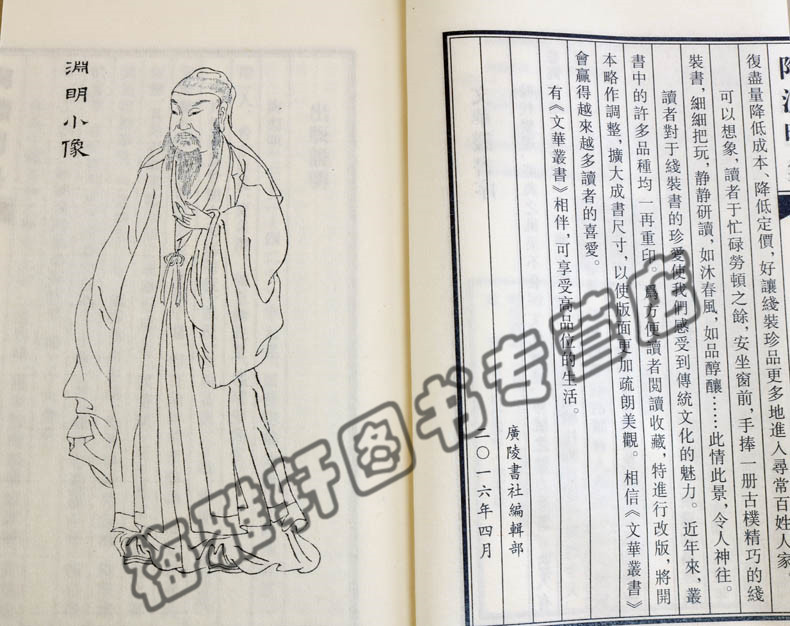 復盡量降低成本、降低定價,好讓綫裝珍品更多地進入尋常百姓人家。
可以想象,讀者于忙碌勞頓之餘,安坐窗前,手捧一册古樸精巧的綫
裝書,細細把玩,静静研讀,如沐春風,如品醇釀……此情此景,令人神往。
讀者對于綫裝書的珍愛使我們感受到傳統文化的魅力。近年來,叢
書中的許多品種均一再重印。爲方便讀者閲讀收藏,特進行改版,將開
本略作調整,擴大成書尺寸,以使版面更加疏朗美觀。相信《文華叢書》
會贏得越來越多讀者的喜愛。
有《文華叢書》相伴,可享受高品位的生活。
廣陵書社編輯部
二〇一六年四月
淵明小像
梅雅轩图书专营店